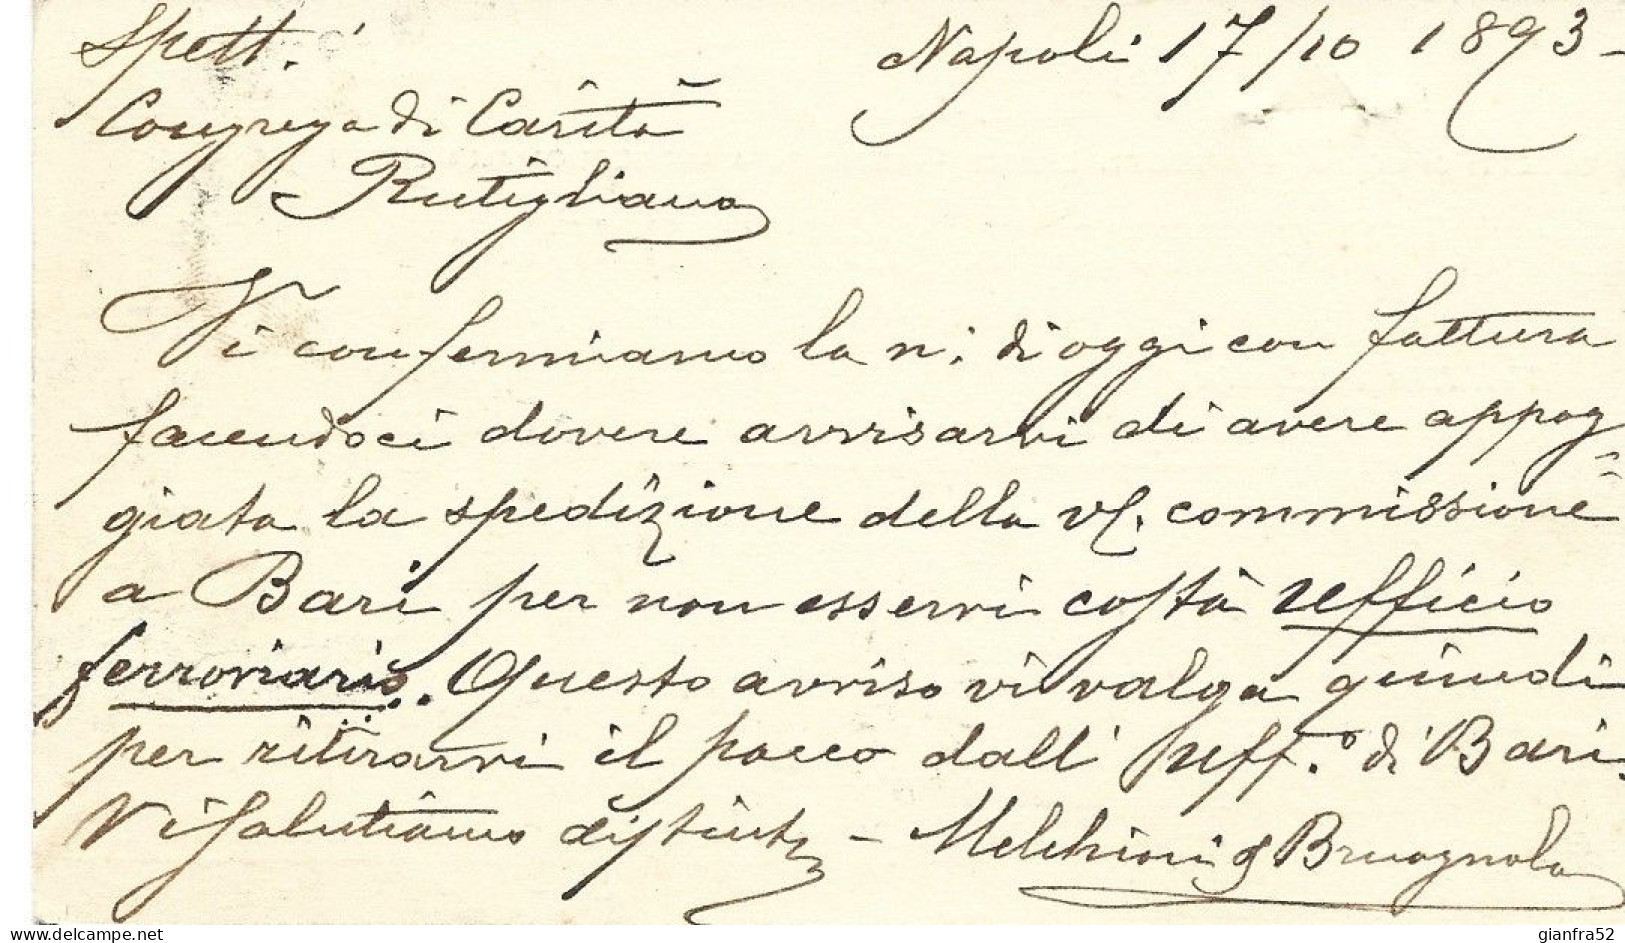 Spett. Napoli 17/10 1893-
Congrega di Carità
Rutigliano
Vi confermiamo la n. di oggi con fattura
facendoci dovere avvisarvi di avere appog=
giata la spedizione della vs. commissione
a Bari per non esservi costà ufficio
ferroviario. Questo avviso vi valga quindi
per ritirarvi il pacco dall' Uff.º di Bari.
Vi salutiamo distint - Melchioni & Brugnola
www.delcampe.net gianfra52